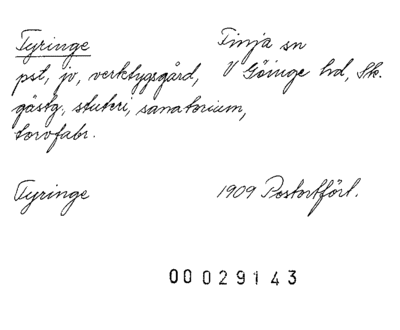 Tyringe Finja sn
pst, jv, verktygsgård, V Göinge hd, Sk.
gästg., stuteri, sanatorium,
torvfabr.
Tyringe 1909 Postortfört.
00029143